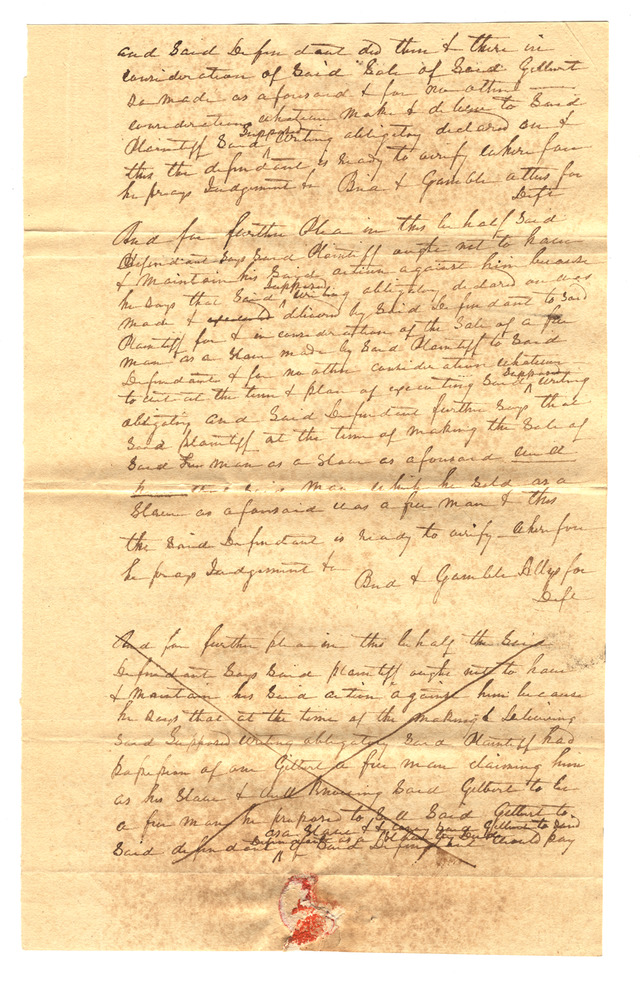 and Said Defendant did then & there in
consideration of Said Sale of Said Gilbert
so made as aforesaid & for no other
consideration whatever make & deliver to Said
Plaintiff Said Supposed Writing obligatory declared on &
this the defendant is ready to verify wherefore
he prays Judgement &c Bird & Gamble attys for
Deft
And for further Plea in this behalf Said
Defendant Says Said Plaintiff ought not to have
& Maintain his Said action against him because
he Says that Said Supposed Writing obligatory declared on was
made & executed delivered by Said Defendant to Said
Plaintiff for & in consideration of the Sale of a free
man as a Slave made by Said Plaintiff to Said
Defendant & for no other consideration whatever
to wit at the time & place of executing Said Supposed Writing
obligatory and Said Defendant further Says that
Said Plaintiff at the time of making the Sale of
Said Free man as a Slave as aforesaid
man which he Sold as a
Slave as aforesaid was a free man & this
the Said Defendant is ready to verify wherefore
he prays Judgement &c
Bird & Gamble Attys for
Deft
And for further plea in this behalf the Said
Defendant Says Said plaintiff ought not to have
& Maintain his Said action against him because
he Says that at the time of the making & delivering
Said Supposed Writing obligatory Said Plaintiff had
possession of one Gilbert a free man claiming him
as his Slave & well Knowing Said Gilbert to be
a free man he proposed to Sell Said Gilbert to
as a Slave & Gilbert to Said
Said defendant Said Defendant would pay